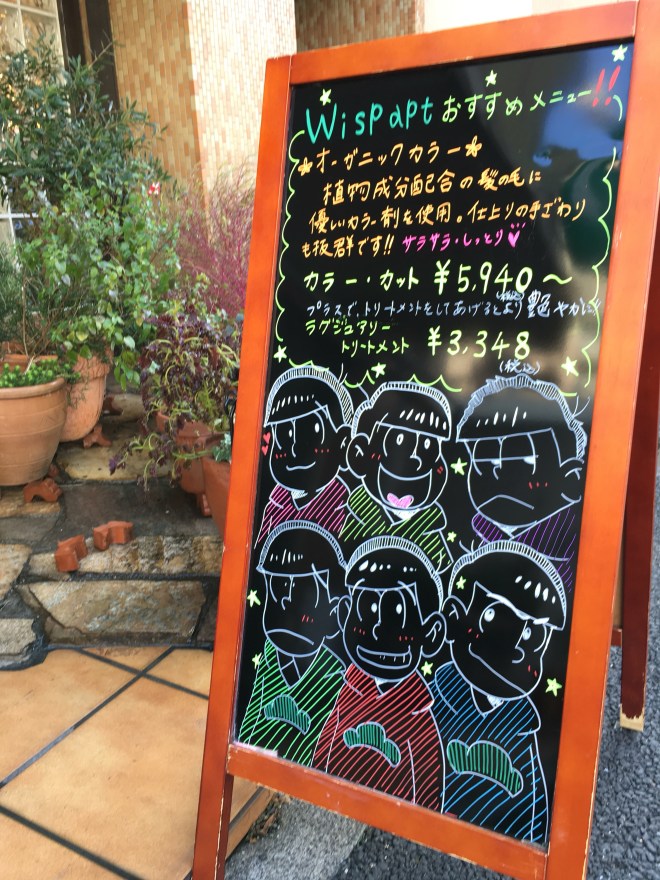 Wispapt おすすめメニュー!!
オーガニックカラー
植物成分配合の髪の毛に
優しいカラー剤を使用。仕上りの手ざわり
も抜群です!! サラサラ・しっとり♥
カラー・カット ¥5,940〜
(税込)
プラスで、トリートメントをしてあげるとより艶やかに!
ラグジュアリー
トリートメント ¥3,348
(税込)